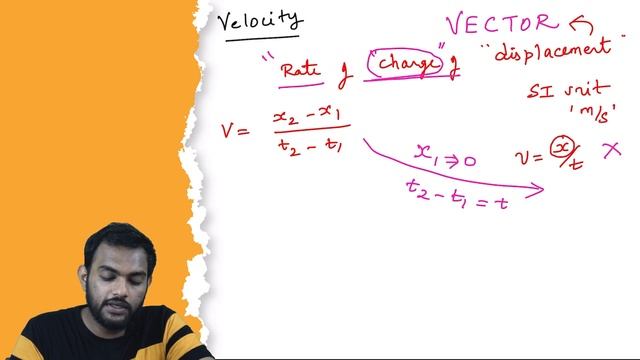 Velocity
VECTOR
"Rate of "change" of "displacement"
SI unit
'm/s'
V = x₂ - x₁ / t₂ - t₁
x₁ ⇒ 0
t₂ - t₁ = t
v = x/t ×